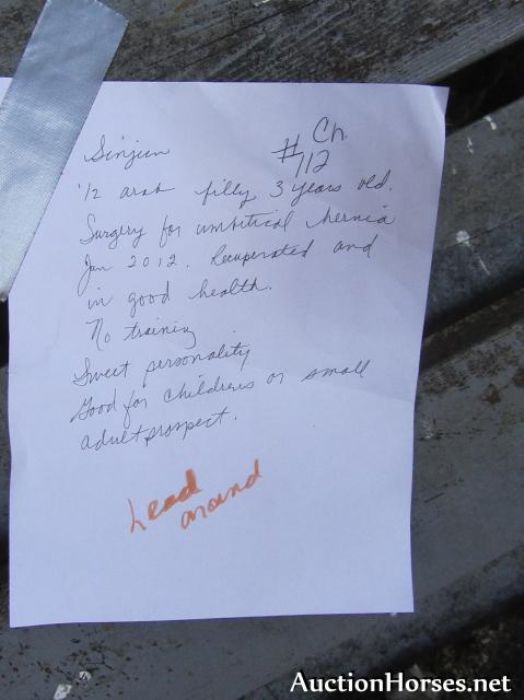 Sinjin
Ch
#712
1/2 arab filly 3 years old.
Surgery for umbitical hernia
Jan 2012. Recuperated and
in good health.
No training
Sweet personality
Good for childrens or small
adult prospect.
Lead
around
AuctionHorses.net